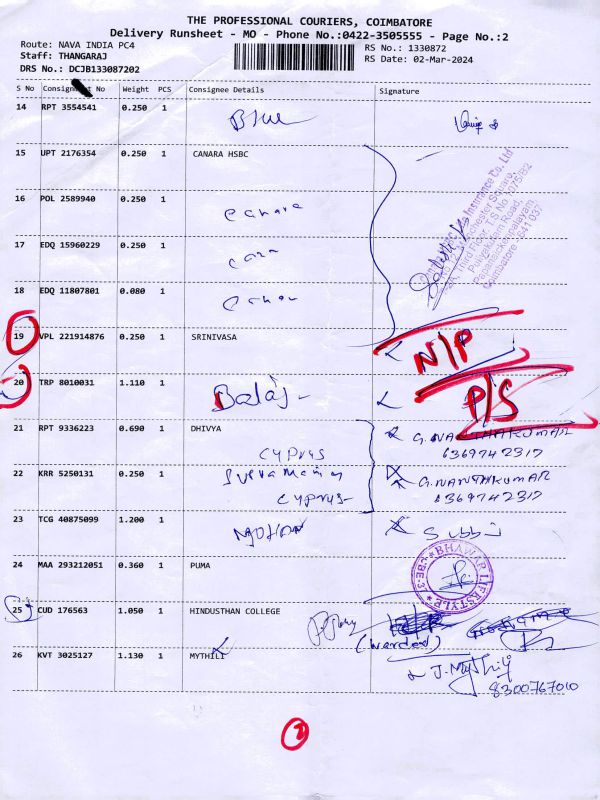 THE PROFESSIONAL COURIERS, COIMBATORE
Delivery Runsheet - MO - Phone No.:0422-3505555 - Page No.:2
Route: NAVA INDIA PC4
RS No.: 1330872
Staff: THANGARAJ
RS Date: 02-Mar-2024
DRS No.: DCJB133087202
S No Consignment No Weight PCS Consignee Details Signature
14 RPT 3554541 0.250 1
15 UPT 2176354 0.250 1 CANARA HSBC
16 POL 2589940 0.250 1
canara
17 EDQ 15960229 0.250 1
18 EDQ 11807801 0.080 1
19 VPL 221914876 0.250 1 SRINIVASA N/P
20 TRP 8010031 1.110 1 Balaji P/S
21 RPT 9336223 0.690 1 DHIVYA G. NANTHAKUMAR
cyprus 6369742317
22 KRR 5250131 0.250 1 G. NANTHKUMAR
cyprus 6369742317
23 TCG 40875099 1.200 1
24 MAA 293212051 0.360 1 PUMA
BHAWAR LIFESTYLE
CBE-3
25 CUD 176563 1.050 1 HINDUSTHAN COLLEGE
(warden)
26 KVT 3025127 1.130 1 MYTHILI J. Mythili
8300767010